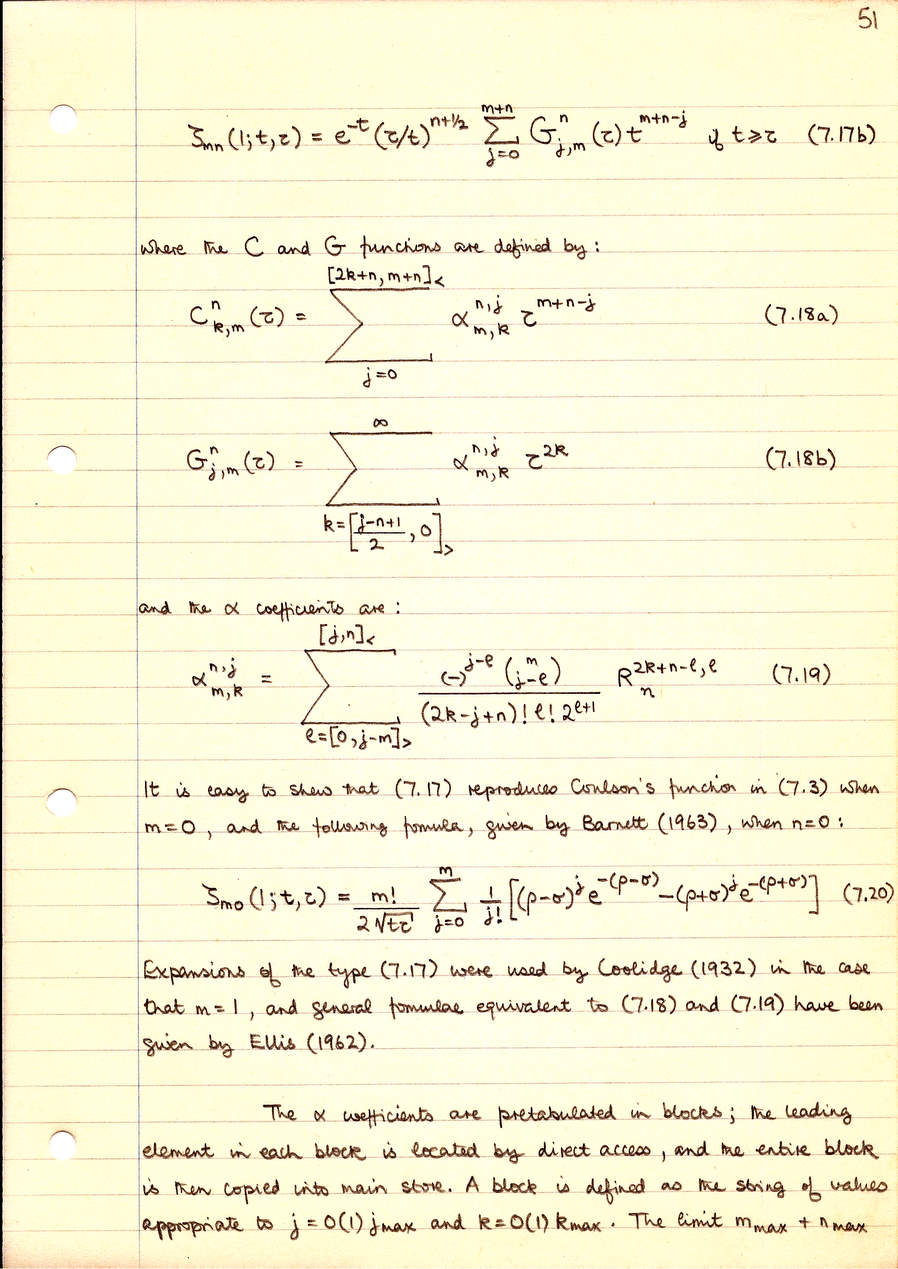 51
ζₘₙ(1;t,τ) = e^{-t} (τ/t)^{n+1/2} \sum_{j=0}^{m+n} G^{n}_{j,m}(τ) t^{m+n-j} if t⩾τ (7.17b)
where the C and G functions are defined by :
C^{n}_{k,m}(τ) = \sum_{j=0}^{[2k+n, m+n]_<} α^{n,j}_{m,k} τ^{m+n-j} (7.18a)
G^{n}_{j,m}(τ) = \sum_{k=[\frac{j-n+1}{2}, 0]_>}^{∞} α^{n,j}_{m,k} τ^{2k} (7.18b)
and the α coefficients are :
α^{n,j}_{m,k} = \sum_{ℓ=[0,j-m]_>}^{[j,n]_<} \frac{(-)^{j-ℓ} \binom{m}{j-ℓ}}{(2k-j+n)! ℓ! 2^{ℓ+1}} R_{n}^{2k+n-ℓ,ℓ} (7.19)
It is easy to show that (7.17) reproduces Coulson's function in (7.3) when
m=0, and the following formula, given by Barnett (1963), when n=0 :
ζₘ₀(1;t,τ) = \frac{m!}{2\sqrt{tτ}} \sum_{j=0}^{m} \frac{1}{j!} [(ρ-σ)^{j} e^{-(ρ-σ)} -(ρ+σ)^{j} e^{-(ρ+σ)}] (7.20)
Expansions of the type (7.17) were used by Coolidge (1932) in the case
that m=1, and general formulae equivalent to (7.18) and (7.19) have been
given by Ellis (1962).
The α coefficients are pretabulated in blocks; the leading
element in each block is located by direct access, and the entire block
is then copied into main store. A block is defined as the string of values
appropriate to j = 0(1) jmax and k=0(1) kmax. The limit mmax + nmax